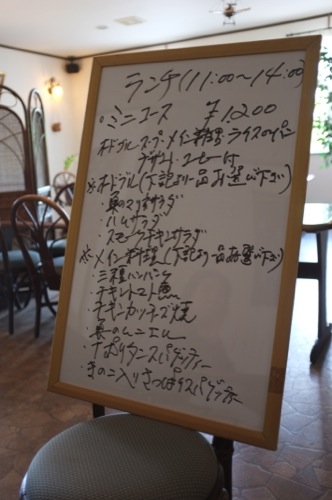 ランチ(11:00〜14:00)
◦ミニコース ¥1,200
オードブル スープ メイン料理 ライスorパン
デザート・コーヒー付
※オードブル(下記より一品お選び下さい)
・魚のマリネサラダ
・ハムサラダ
・スモークチキンサラダ
※メイン料理(下記より一品お選び下さい)
・三種ハンバーグ
・チキントマト煮
・チキンカツチーズ焼
・魚のムニエル
・ナポリタンスパゲッティー
・きのこ入りさっぱりスパゲッティー